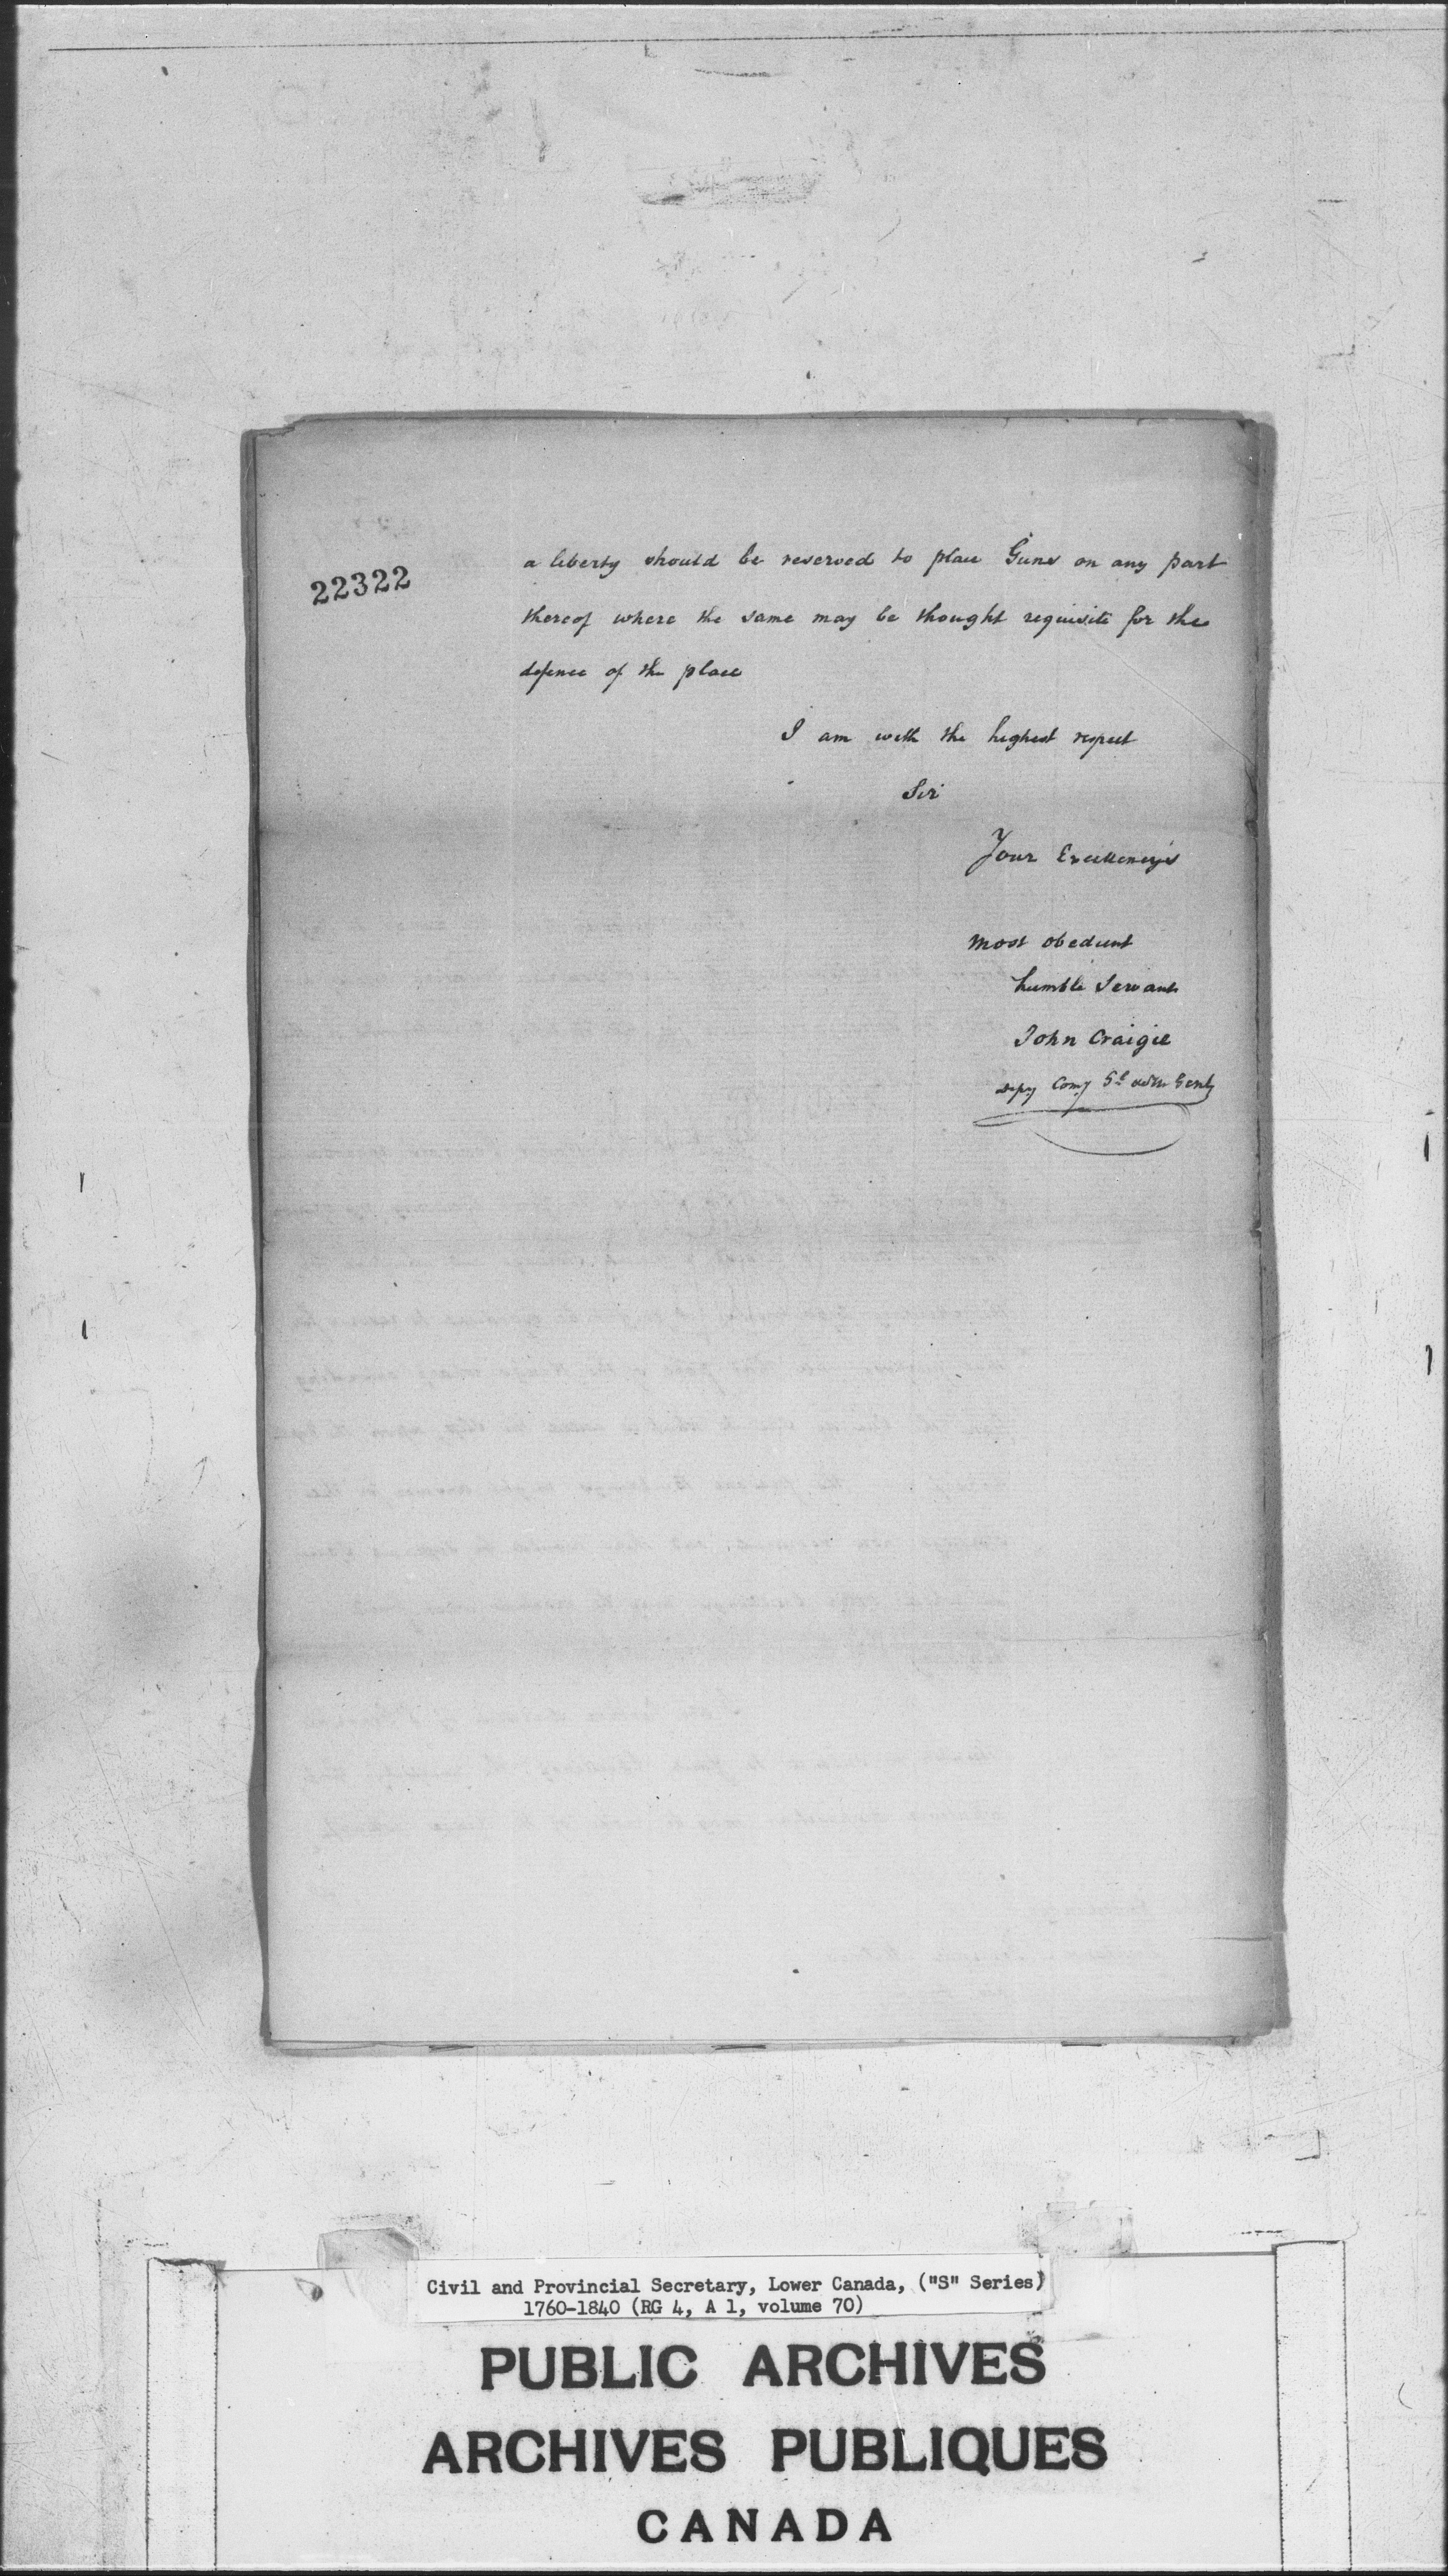 22322
a liberty should be reserved to place Guns on any part
thereof where the same may be thought requisite for the
defence of the place
I am with the highest respect
Sir
Your Excellency's
most obedient
humble Servant
John Craigie
Depy Comy Gl
Civil and Provincial Secretary, Lower Canada, ("S" Series)
1760-1840 (RG 4, A 1, volume 70)
PUBLIC ARCHIVES
ARCHIVES PUBLIQUES
CANADA